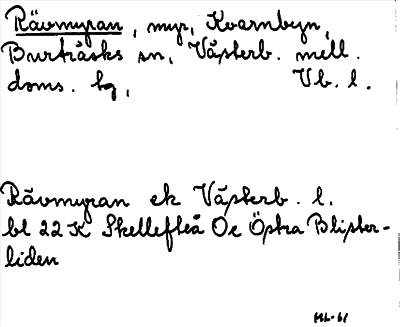 Rävmyran, myr, Kvarnbyn,
Burträsks sn, Västerb. mell.
doms. hg, Vb. l.
Rävmyran ek Västerb. l.
bl 22 K Skellefteå Öe Östra Blister-
liden